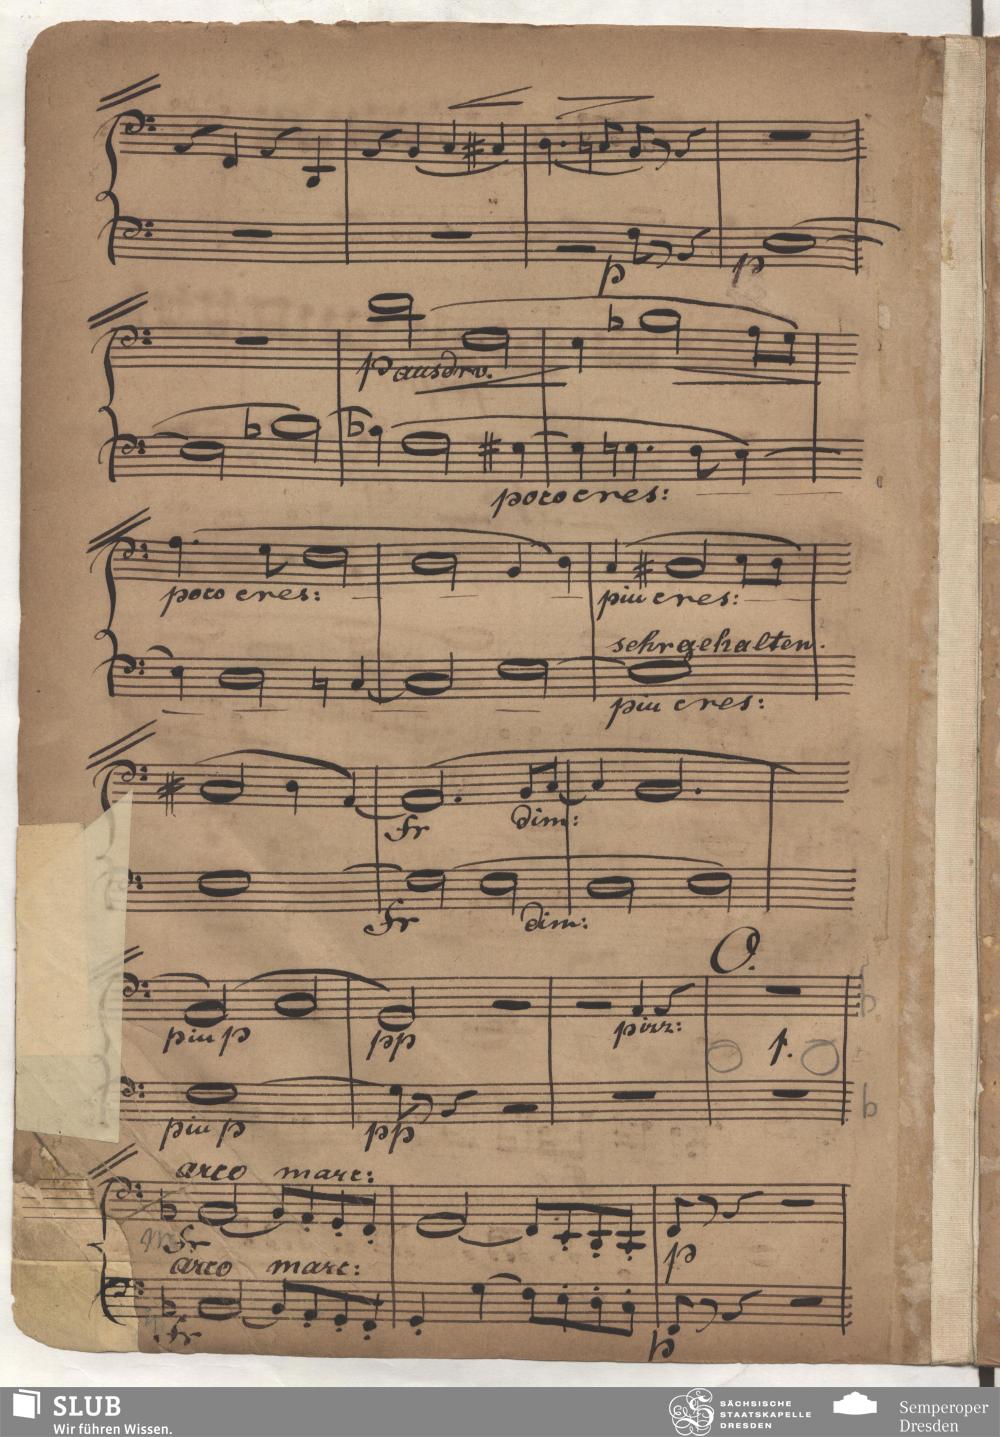 p p
p ausdrv.
poco cres:
poco cres: piu cres:
sehr gehalten.
piu cres:
fr dim:
fr dim:
O.
piu p pp pizz:
p.
piu p pp
arco marc:
fr p
arco marc:
fr p
SLUB
Wir führen Wissen.
SÄCHSISCHE
STAATSKAPELLE
DRESDEN
Semperoper
Dresden